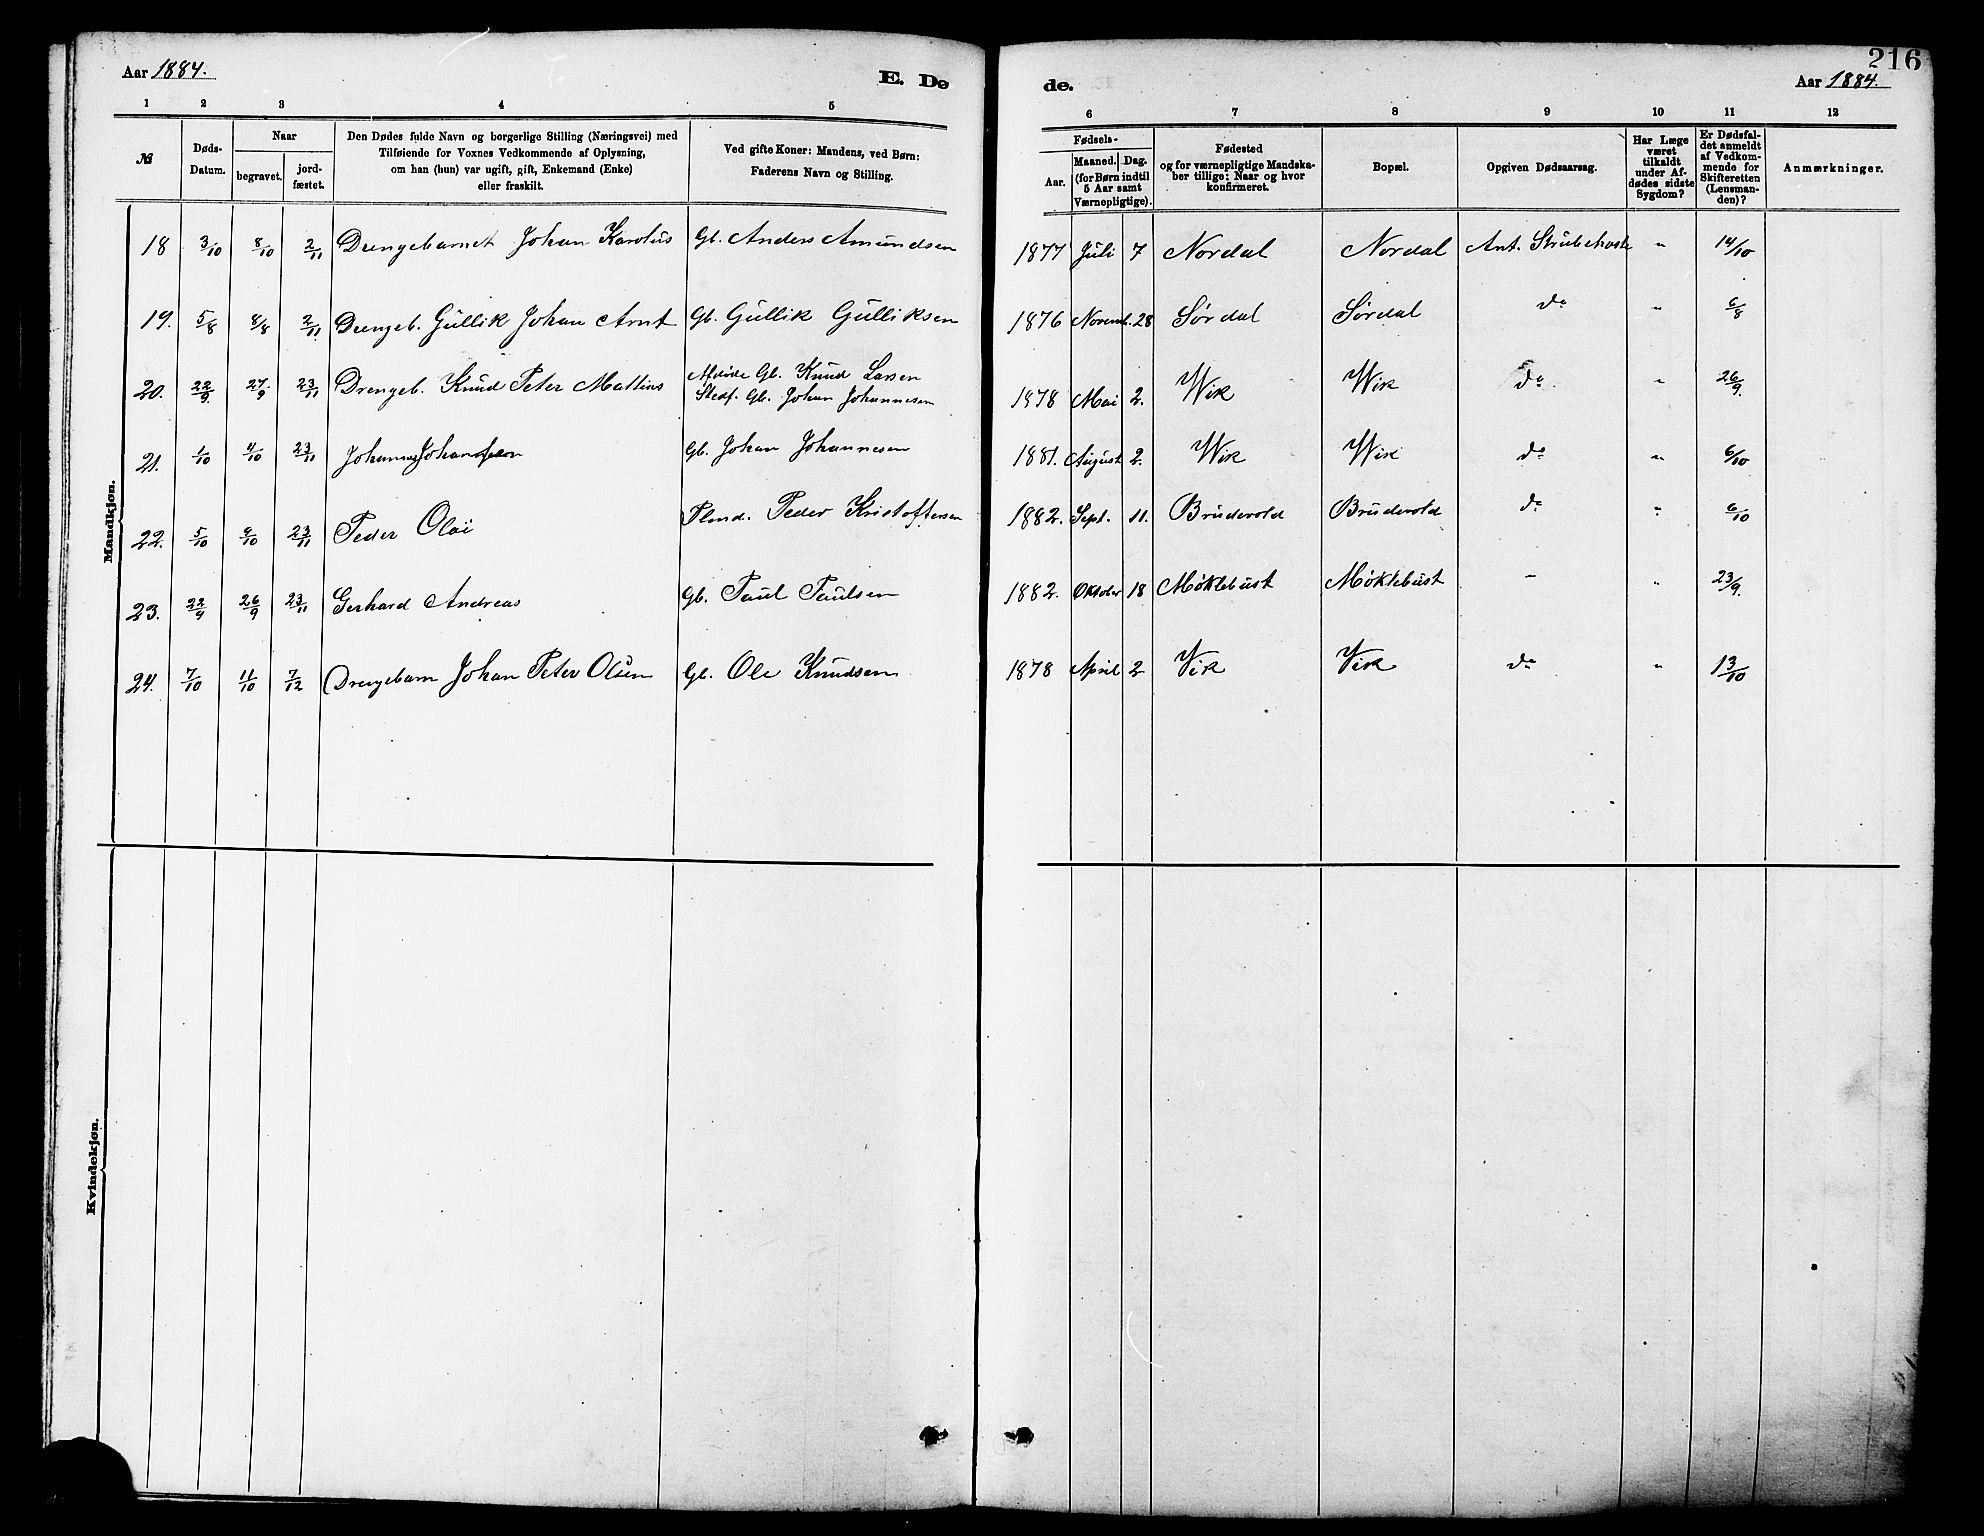 216
Aar 1884. E. Dø de. Aar 1884.
1 2 3 4 5 6 7 8 9 10 11 12
№
Døds-
Datum.
Naar
begravet.
jord-
fæstet.
Den Dødes fulde Navn og borgerlige Stilling (Næringsvei) med
Tilføiende for Voxnes Vedkommende af Oplysning,
om han (hun) var ugift, gift, Enkemand (Enke)
eller fraskilt.
Ved gifte Koner: Mandens, ved Børn:
Faderens Navn og Stilling.
Fødsels-
Aar.
Maaned. Dag.
(for Børn indtil
5 Aar samt
Værnepligtige).
Fødested
og for værnepligtige Mandska-
ber tillige: Naar og hvor
konfirmeret.
Bopæl.
Opgiven Dødsaarsag.
Har Læge
været
tilkaldt
under Af-
dødes sidste
Sygdom?
Er Dødsfal-
det anmeldt
af Vedkom-
mende for
Skifteretten
(Lensman-
den)?
Anmærkninger.
Mandkjøn.
18 3/10 8/10 2/11 Drengebarnet Johan Karolus Gb. Anders Amundsen 1877 Juli 7 Nordal Nordal Ant. Strubehoste " 14/10
19. 5/8 8/8 2/11 Drengeb. Gullik Johan Arnt Gb. Gullik Gulliksen 1876 Novemb. 28 Sørdal Sørdal do " 6/8
20. 22/9 27/9 23/11 Drengeb. Knud Peter Mathius Afdøde Gb. Knud Larsen
Stedf. Gb. Johan Johannesen 1878 Mai 2. Wik Wik do " 26/9.
21. 1/10 4/10 23/11 Johannes Gb. Johan Johannesen 1881. August 2. Wik Wik do " 6/10
22. 5/10 9/10 23/11 Peder Olai Plmd. Peder Kristoffersen 1882. Sept. 11. Brudevold Brudevold do " 6/10
23. 22/9 26/9 23/11 Gerhard Andreas Gb. Paul Paulsen 1882. Oktober 18 Møklebust Møklebust – " 23/9.
24. 7/10 11/10 7/12 Drengebarn Johan Peter Olsen Gb. Ole Knudsen 1878 April 2 Vik Vik do " 13/10
Kvindekjøn.